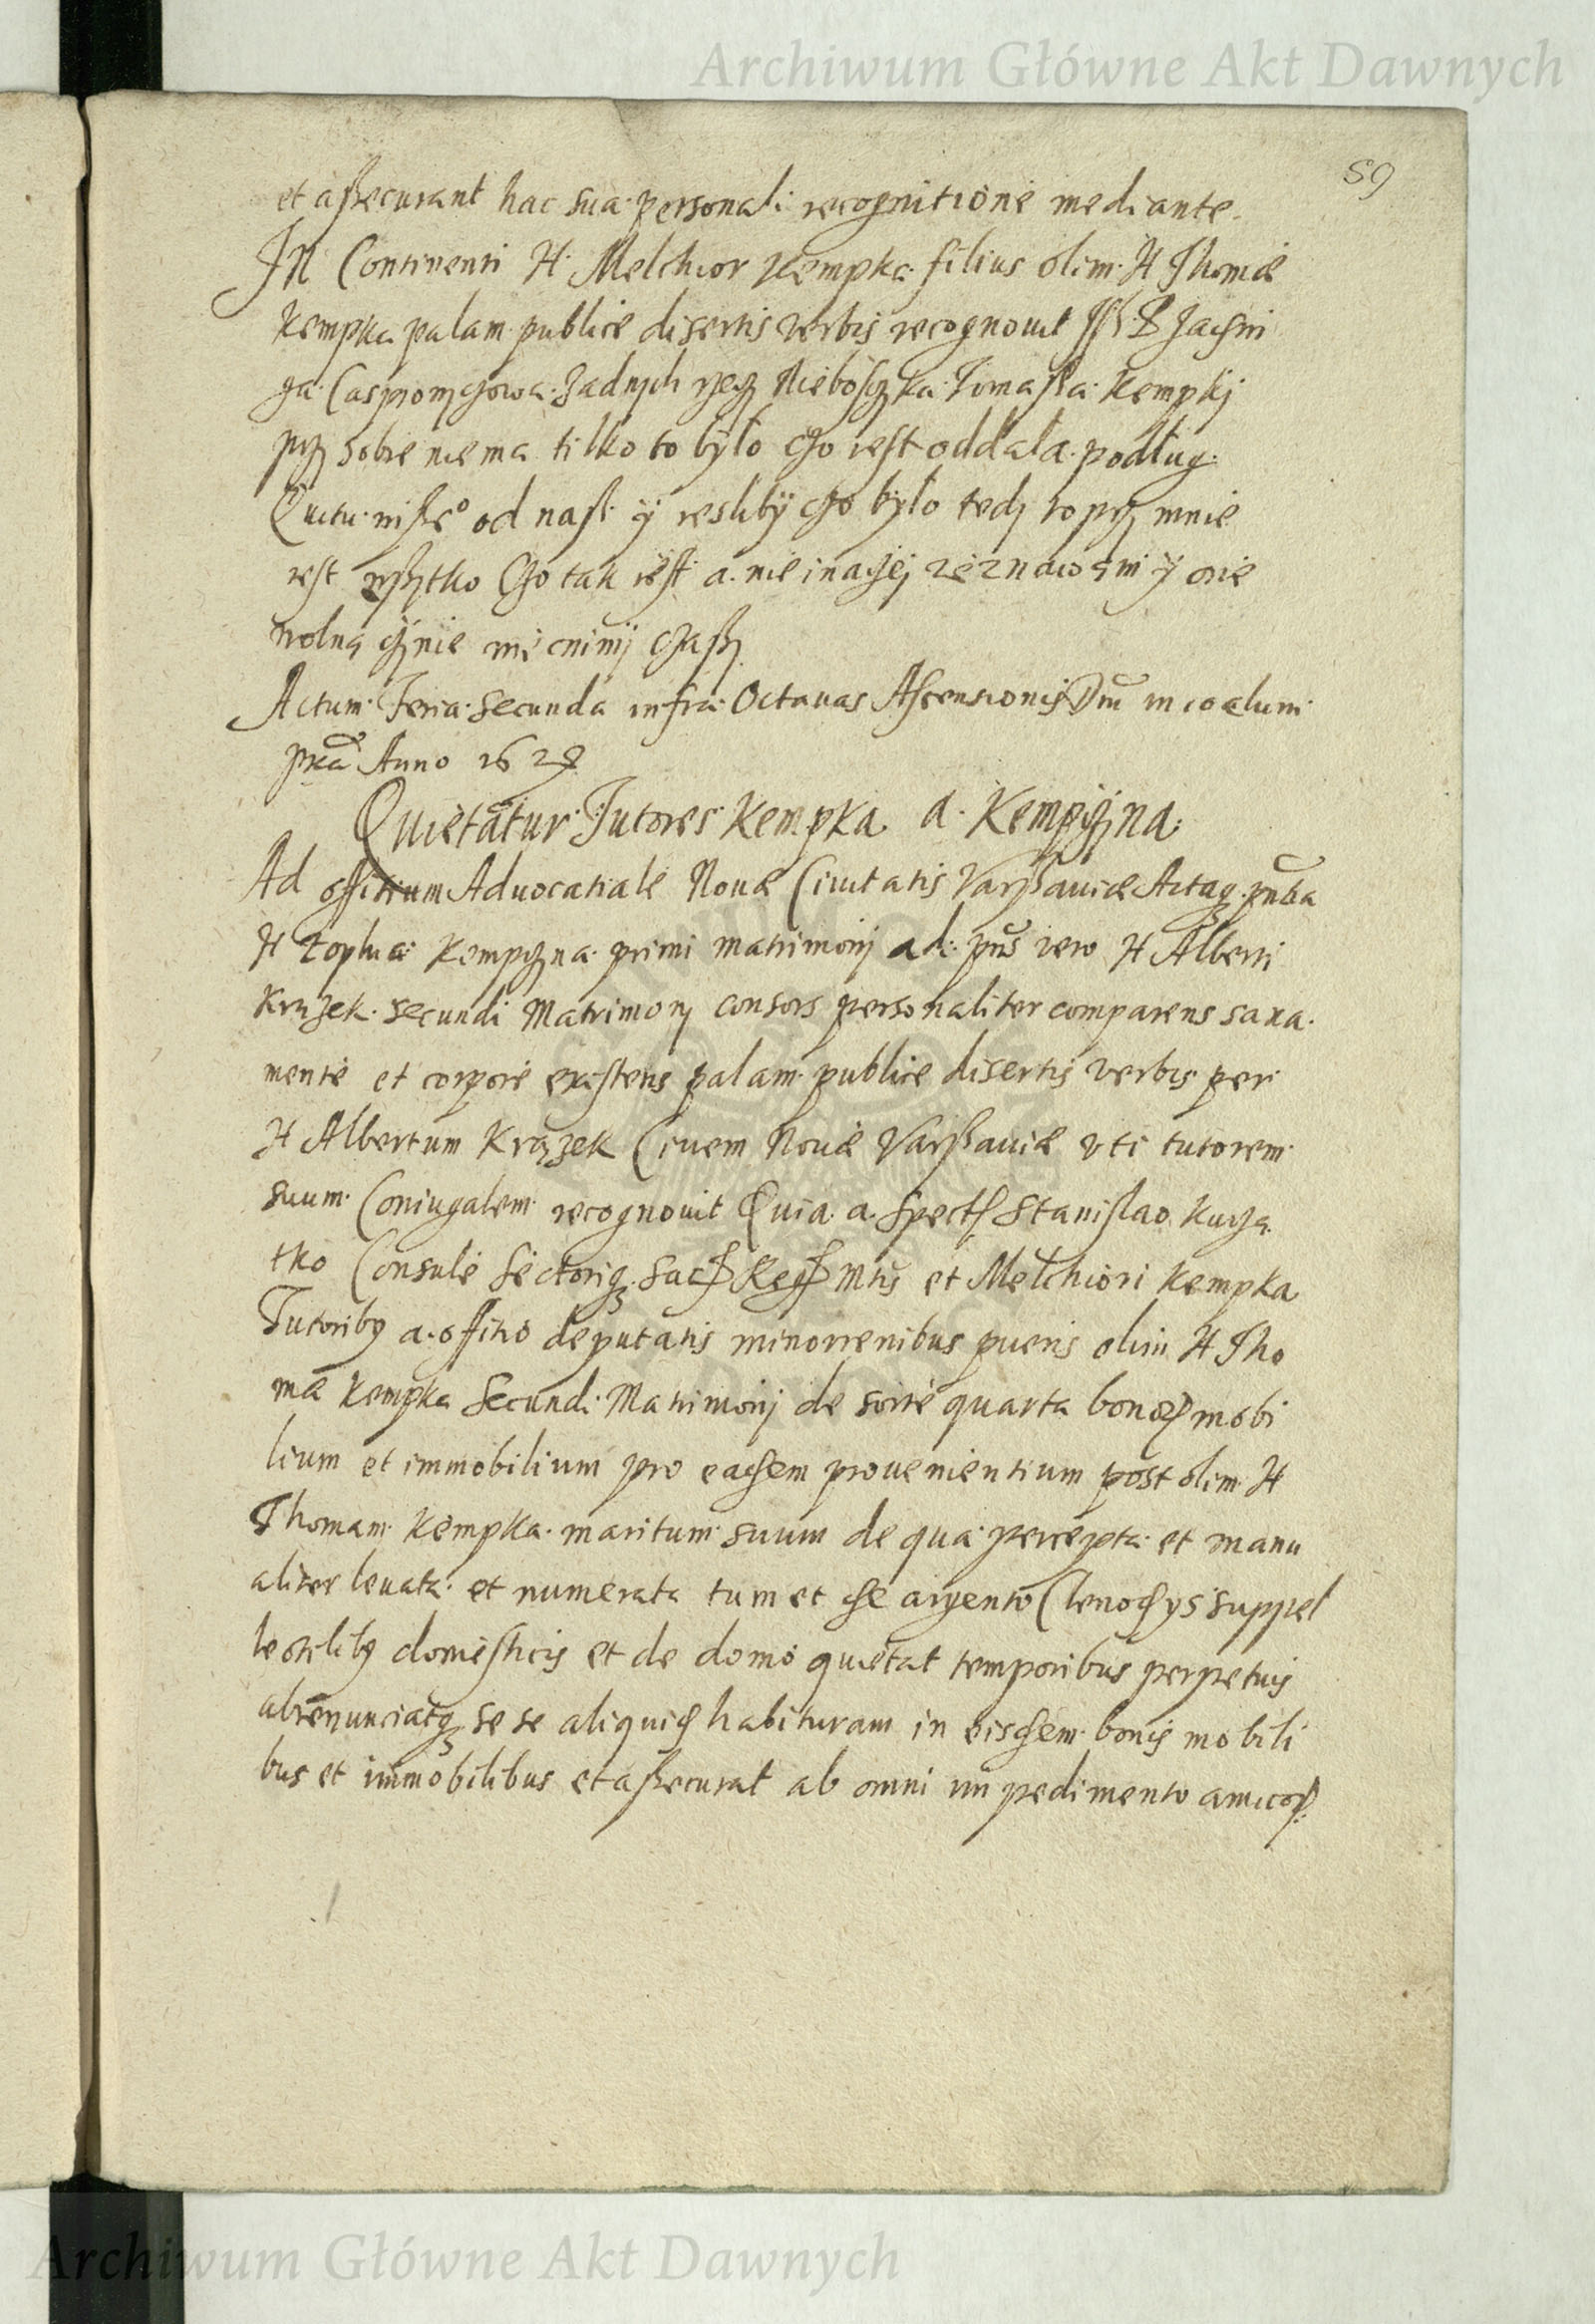 Archiwum Główne Akt Dawnych
59
et assecurant hac sua personali recognitione mediante.
In Continenti H. Melchior Kempka filius olim H Thomæ
Kempka palam publice disertis verbis recognouit
Casprowa Żadnych Niebosczka Tomasza Kempkj
przy sobie nie ma tilko to było czo iest oddała podług
od nas y iesliby czo było tedj to przy mnie
iest wszytko Czo tak iest a nie inaczej zeznawam y onę
wolną czynię czaszy
Actum Feria secunda infra Octauas Ascensionis Dni in coelum
Anno 1629
Quietatur Tutores Kempka a Kempczyna
Ad officium Aduocatiale Nouæ Ciuitatis Varssauiæ Actaq
H Zophia Kempczyna primi matrimonij ad pns vero H Alberti
Krązek secundi Matrimonij consors personaliter comparens sana
mente et corpore existens palam publice disertis verbis per
H Albertum Krązek Ciuem Nouæ Varssauiæ vti tutorem
suum Coniugalem recognouit Quia a Stanislao Kurzą
tko Consule Sectoriq Mtis et Melchiori Kempka
Tutoribq a officio deputatis minorrenibus pueris olim H Tho
mæ Kempka Secundi Matrimonij de sorte quarta bonor mobi
lium et immobilium pro eadem prouenientium post olim H
Thomam Kempka maritum suum de qua percepta et manu
aliter leuata et numerata tum et de argento Clenodys suppel
lectilibq domesticis et de domo quietat temporibus perpetuis
abrenunciatq se se aliquid habituram in eisdem bonis mobili
bus et immobilibus et assecurat ab omni impedimento amicor
Archiwum Główne Akt Dawnych